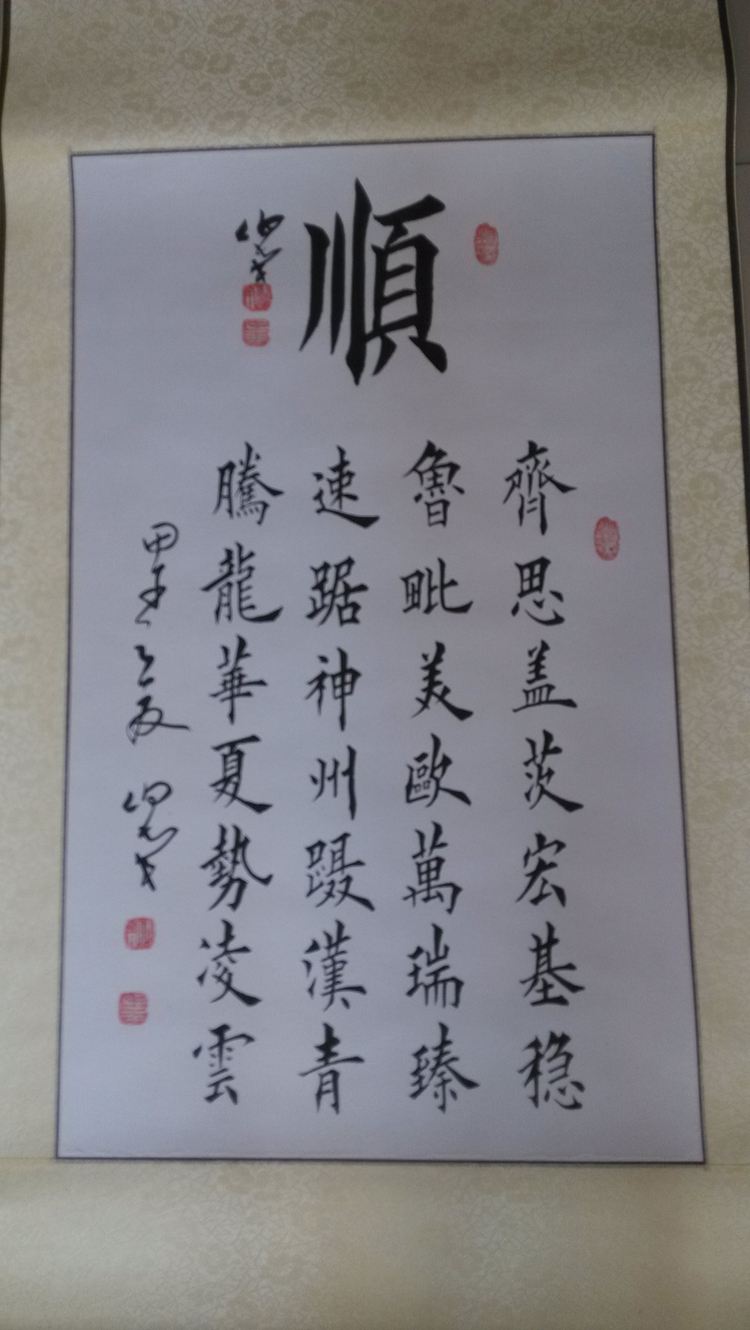 順
齊思盖茨宏基稳
魯毗美歐萬瑞臻
速踞神州蹑漢青
騰龍華夏勢凌雲
甲午之夏